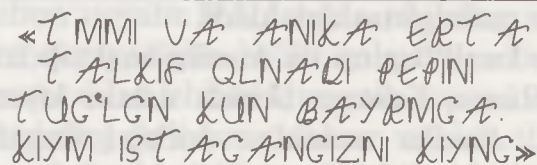 «TMMI VA ANIKA ERTA
TALKIF QLNADI PEPINI
TUG'LGN KUN BAYRMGA.
KIYM ISTAGANGIZNI KIYNG»